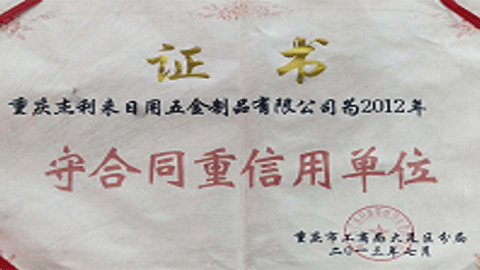 证书
重庆杰利来日用五金制品有限公司为2012年
守合同重信用单位
重庆市工商局大足区分局
二〇一三年七月